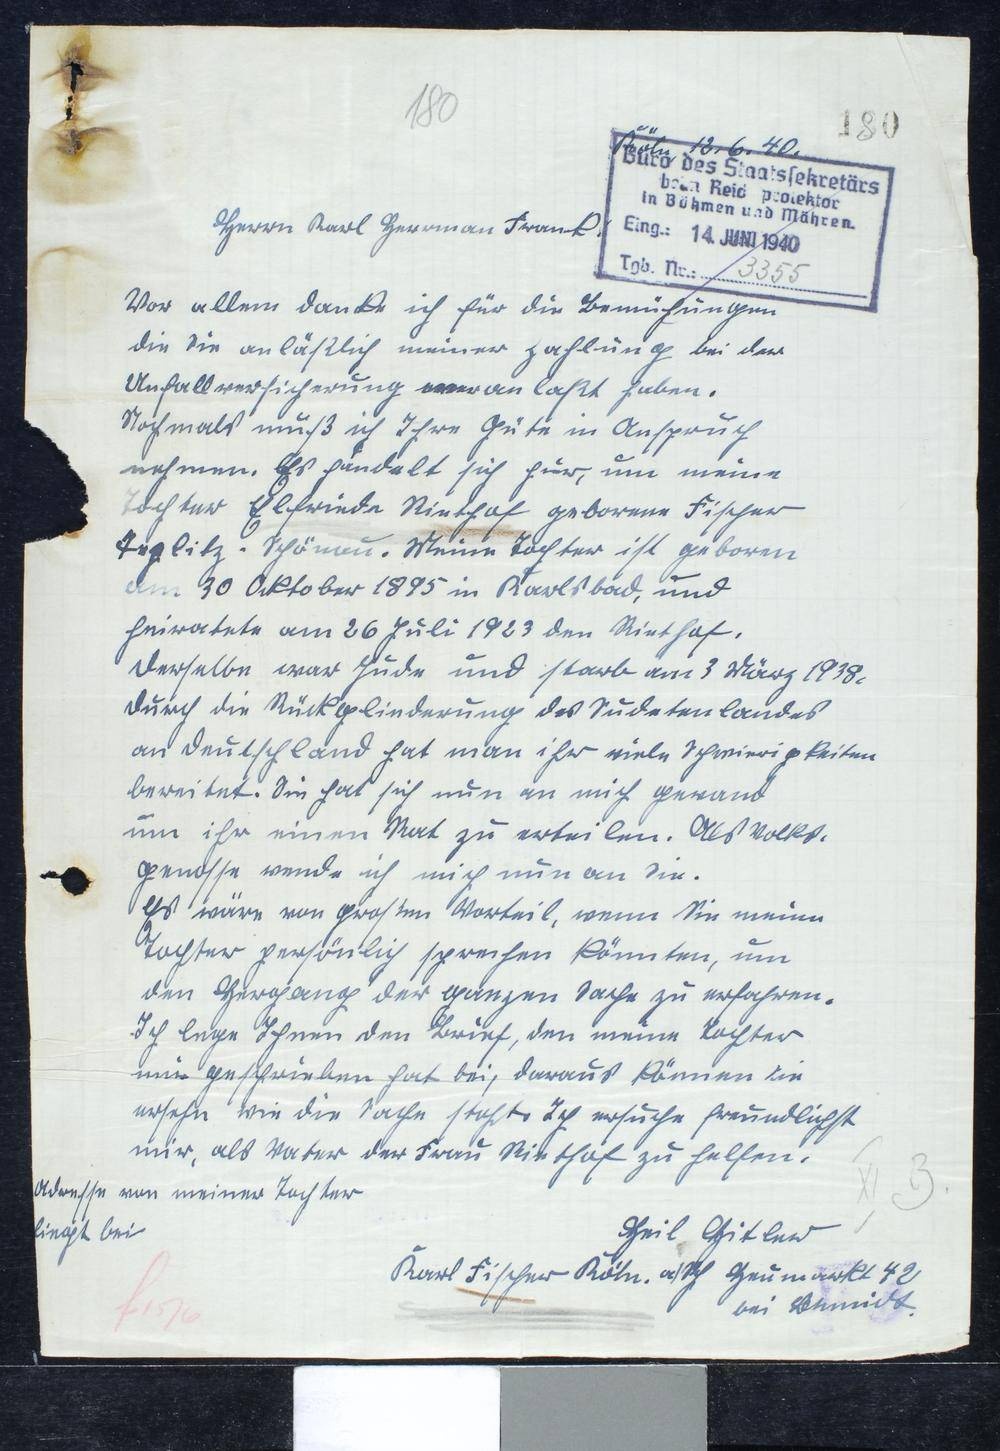 180
180
Köln, 12.6.40.
Büro des Staatssekretärs
beim Reichsprotektor
in Böhmen und Mähren.
Eing.: 14. JUNI 1940
Tgb. Nr.: 3355
Herrn Karl Herrman Frank.
Vor allem danke ich für die Bemühungen
die Sie anläßlich meiner Zahlung bei der
Unfallversicherung veranlaßt haben.
Nochmals muß ich Ihre Güte in Anspruch
nehmen. Es handelt sich hier, um meine
Tochter Elfriede Riethof geborene Fischer
Teplitz-Schönau. Meine Tochter ist geboren
am 30 Oktober 1895 in Karlsbad, und
heiratete am 26 Juli 1923 den Riethof.
Derselbe war Jude und starb am 3 März 1938.
Durch die Rückgliederung des Sudetenlandes
an Deutschland hat man ihr viele Schwierigkeiten
bereitet. Sie hat sich nun an mich gewand
um ihr einen Rat zu erteilen. Als Volks-
genosse wende ich mich nun an Sie.
Es wäre von großem Vorteil, wenn Sie meine
Tochter persönlich sprechen könnten, um
den Hergang der ganzen Sache zu erfahren.
Ich lege Ihnen den Brief, den meine Tochter
mir geschrieben hat bei, daraus können Sie
ersehn wie die Sache steht. Ich ersuche freundlichst
mir, als Vater der Frau Riethof zu helfen.
Adresse von meiner Tochter
liegt bei
Heil Hitler
Karl Fischer Köln. a/Rh Heumarkt 42
bei Schmidt.
XI B.